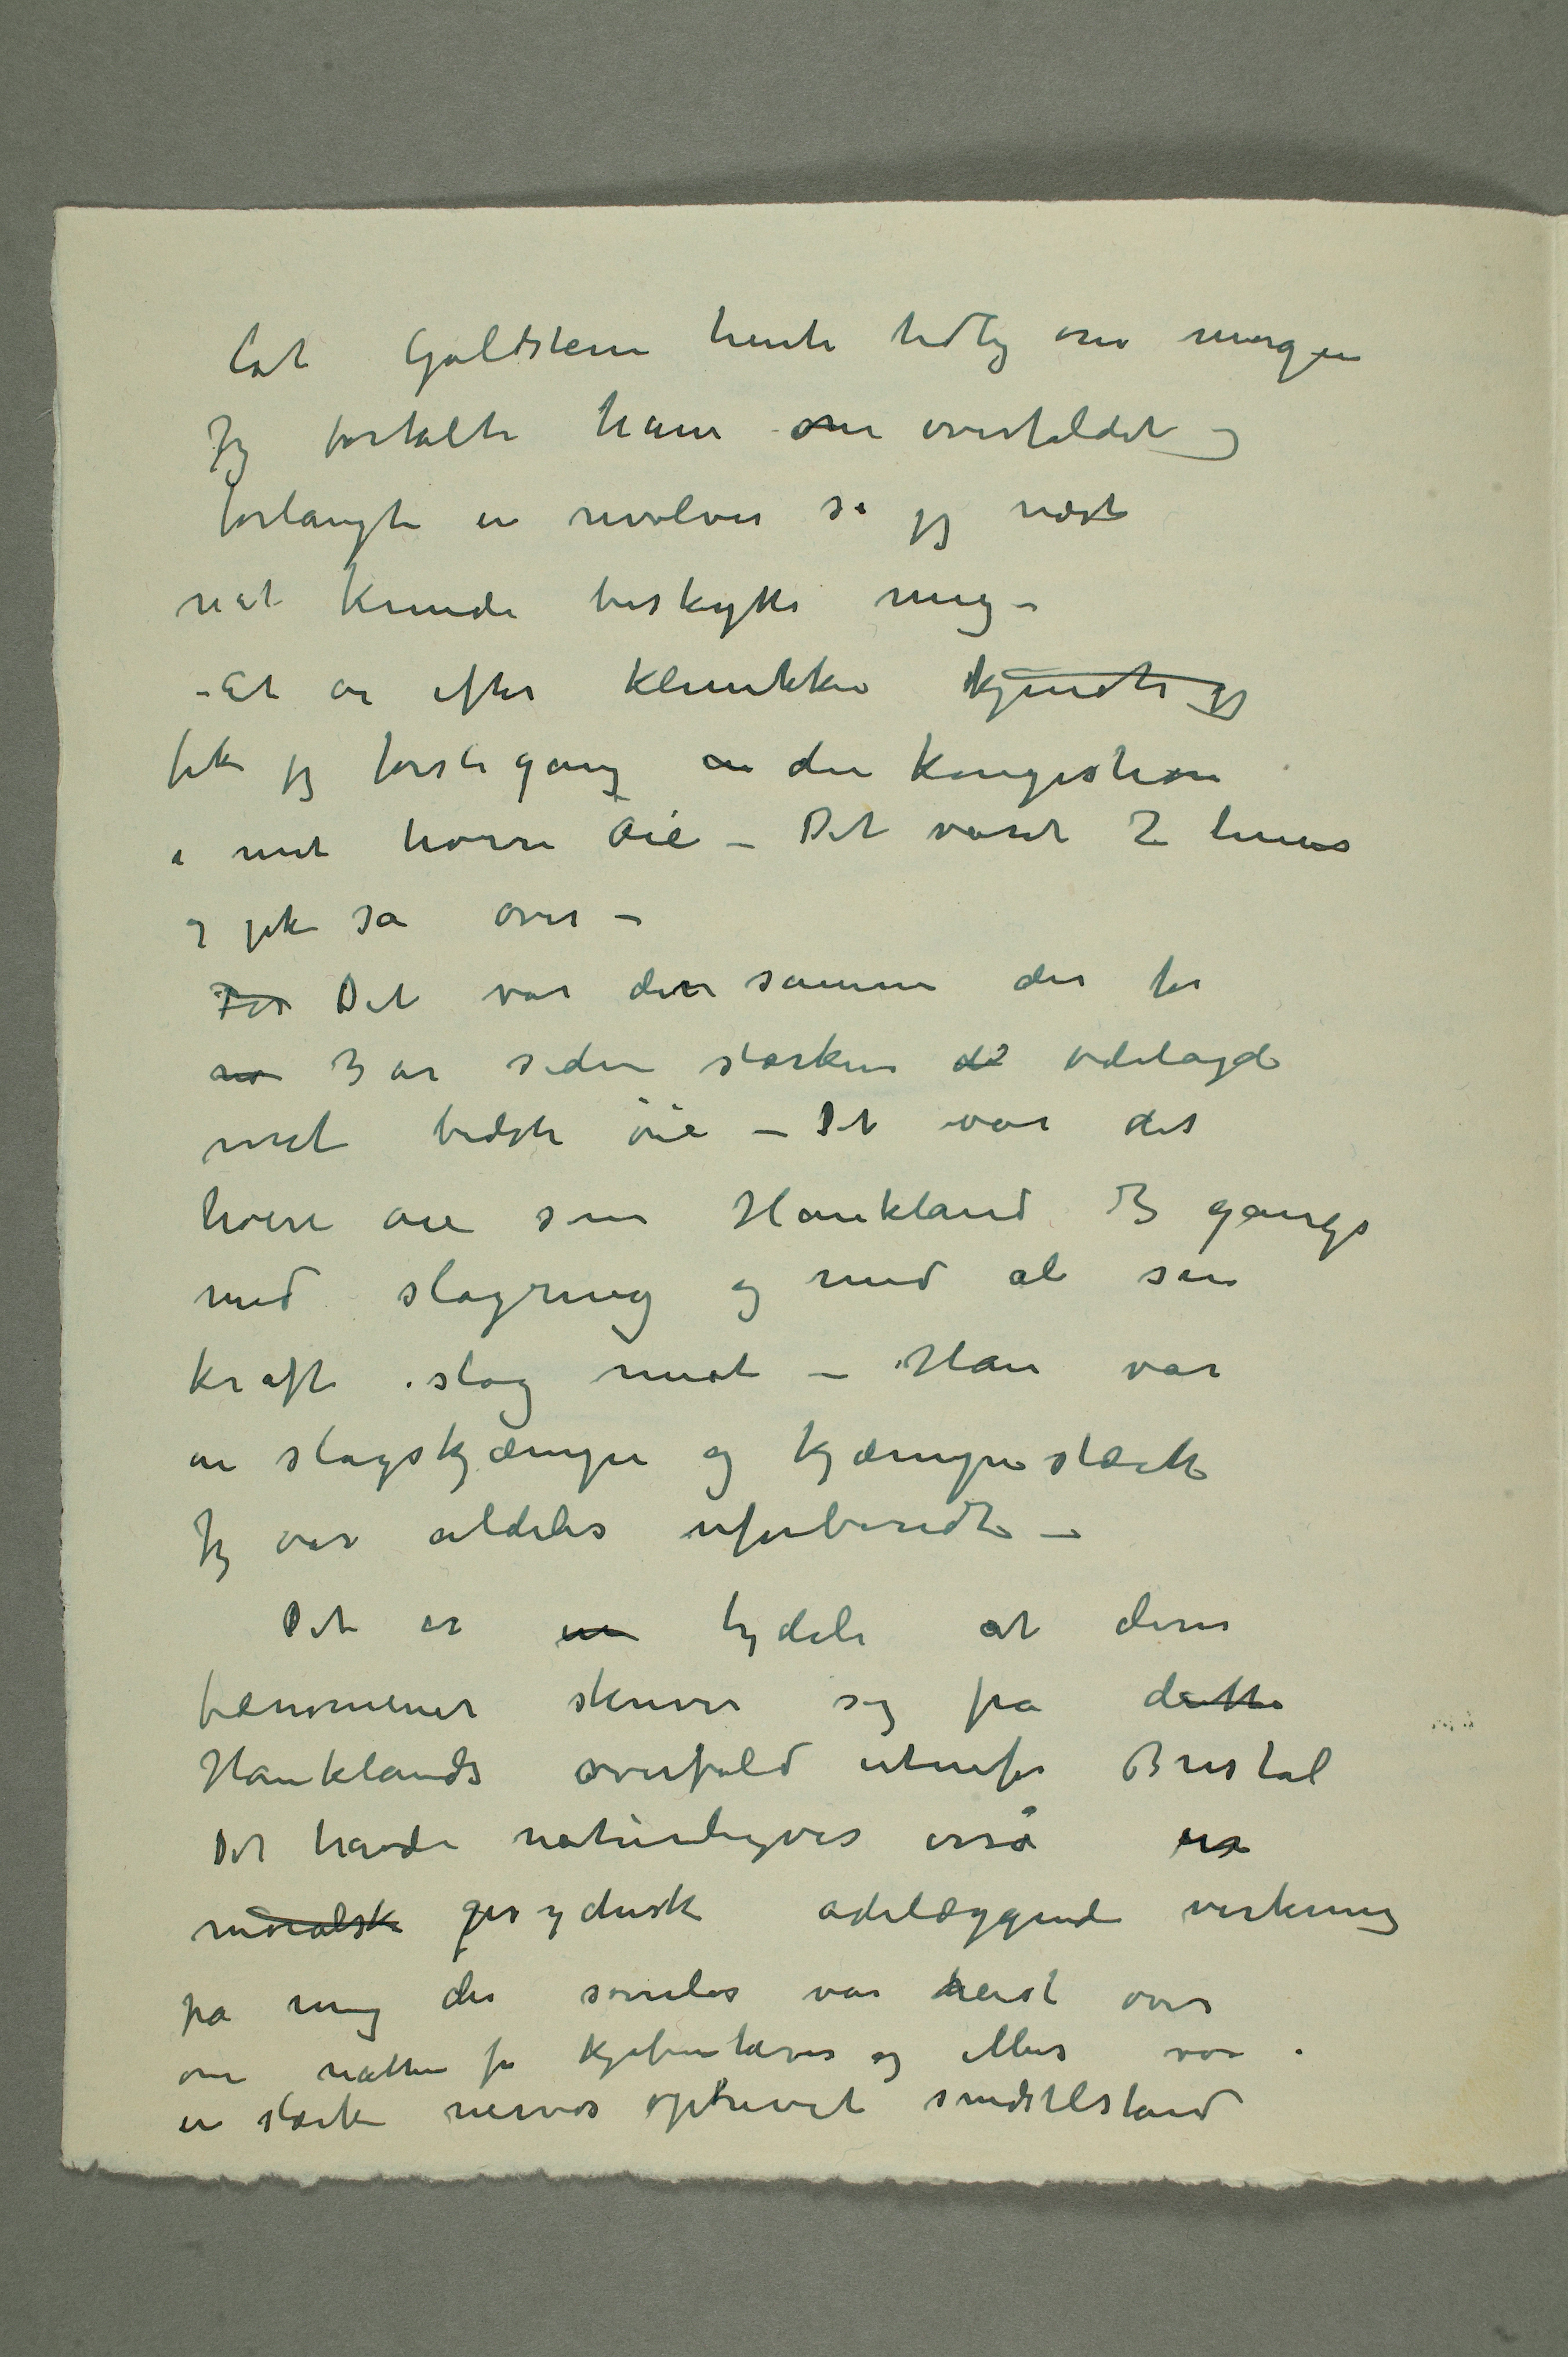 lot Goldstein hente tidlig om morgen
Jeg fortalte ham om overfaldet og
forlangte en revolver så jeg næste
nat kunde beskytte mig –
– Et år efter klinikken kjendte jeg
fik jeg første gang en den kongestion
i mit høire Øie – Det varte 2 timer
og gik så over –
For Det var den samme der for
no 3 år siden stærkere de ødelagde
mit bedste øie – Det var det
høire øie som Haukland 3 gange
med slagring og med al sin
kraft slog imot – Han var
en slagskjæmpe og kjæmpestærk
Jeg var aldeles uforberedt –
Det er en tydeli at disse
fænomener skriver sig fra dette
Hauklands overfald utenfor Bristol
Det havde naturligvis også en
moralsk psychisk ødelæggende virkning
på mig der søvnløs var reist over
om natten fra Kjøbenhavn og ellers var i
en stærk nervøs oprevet sindstilstand